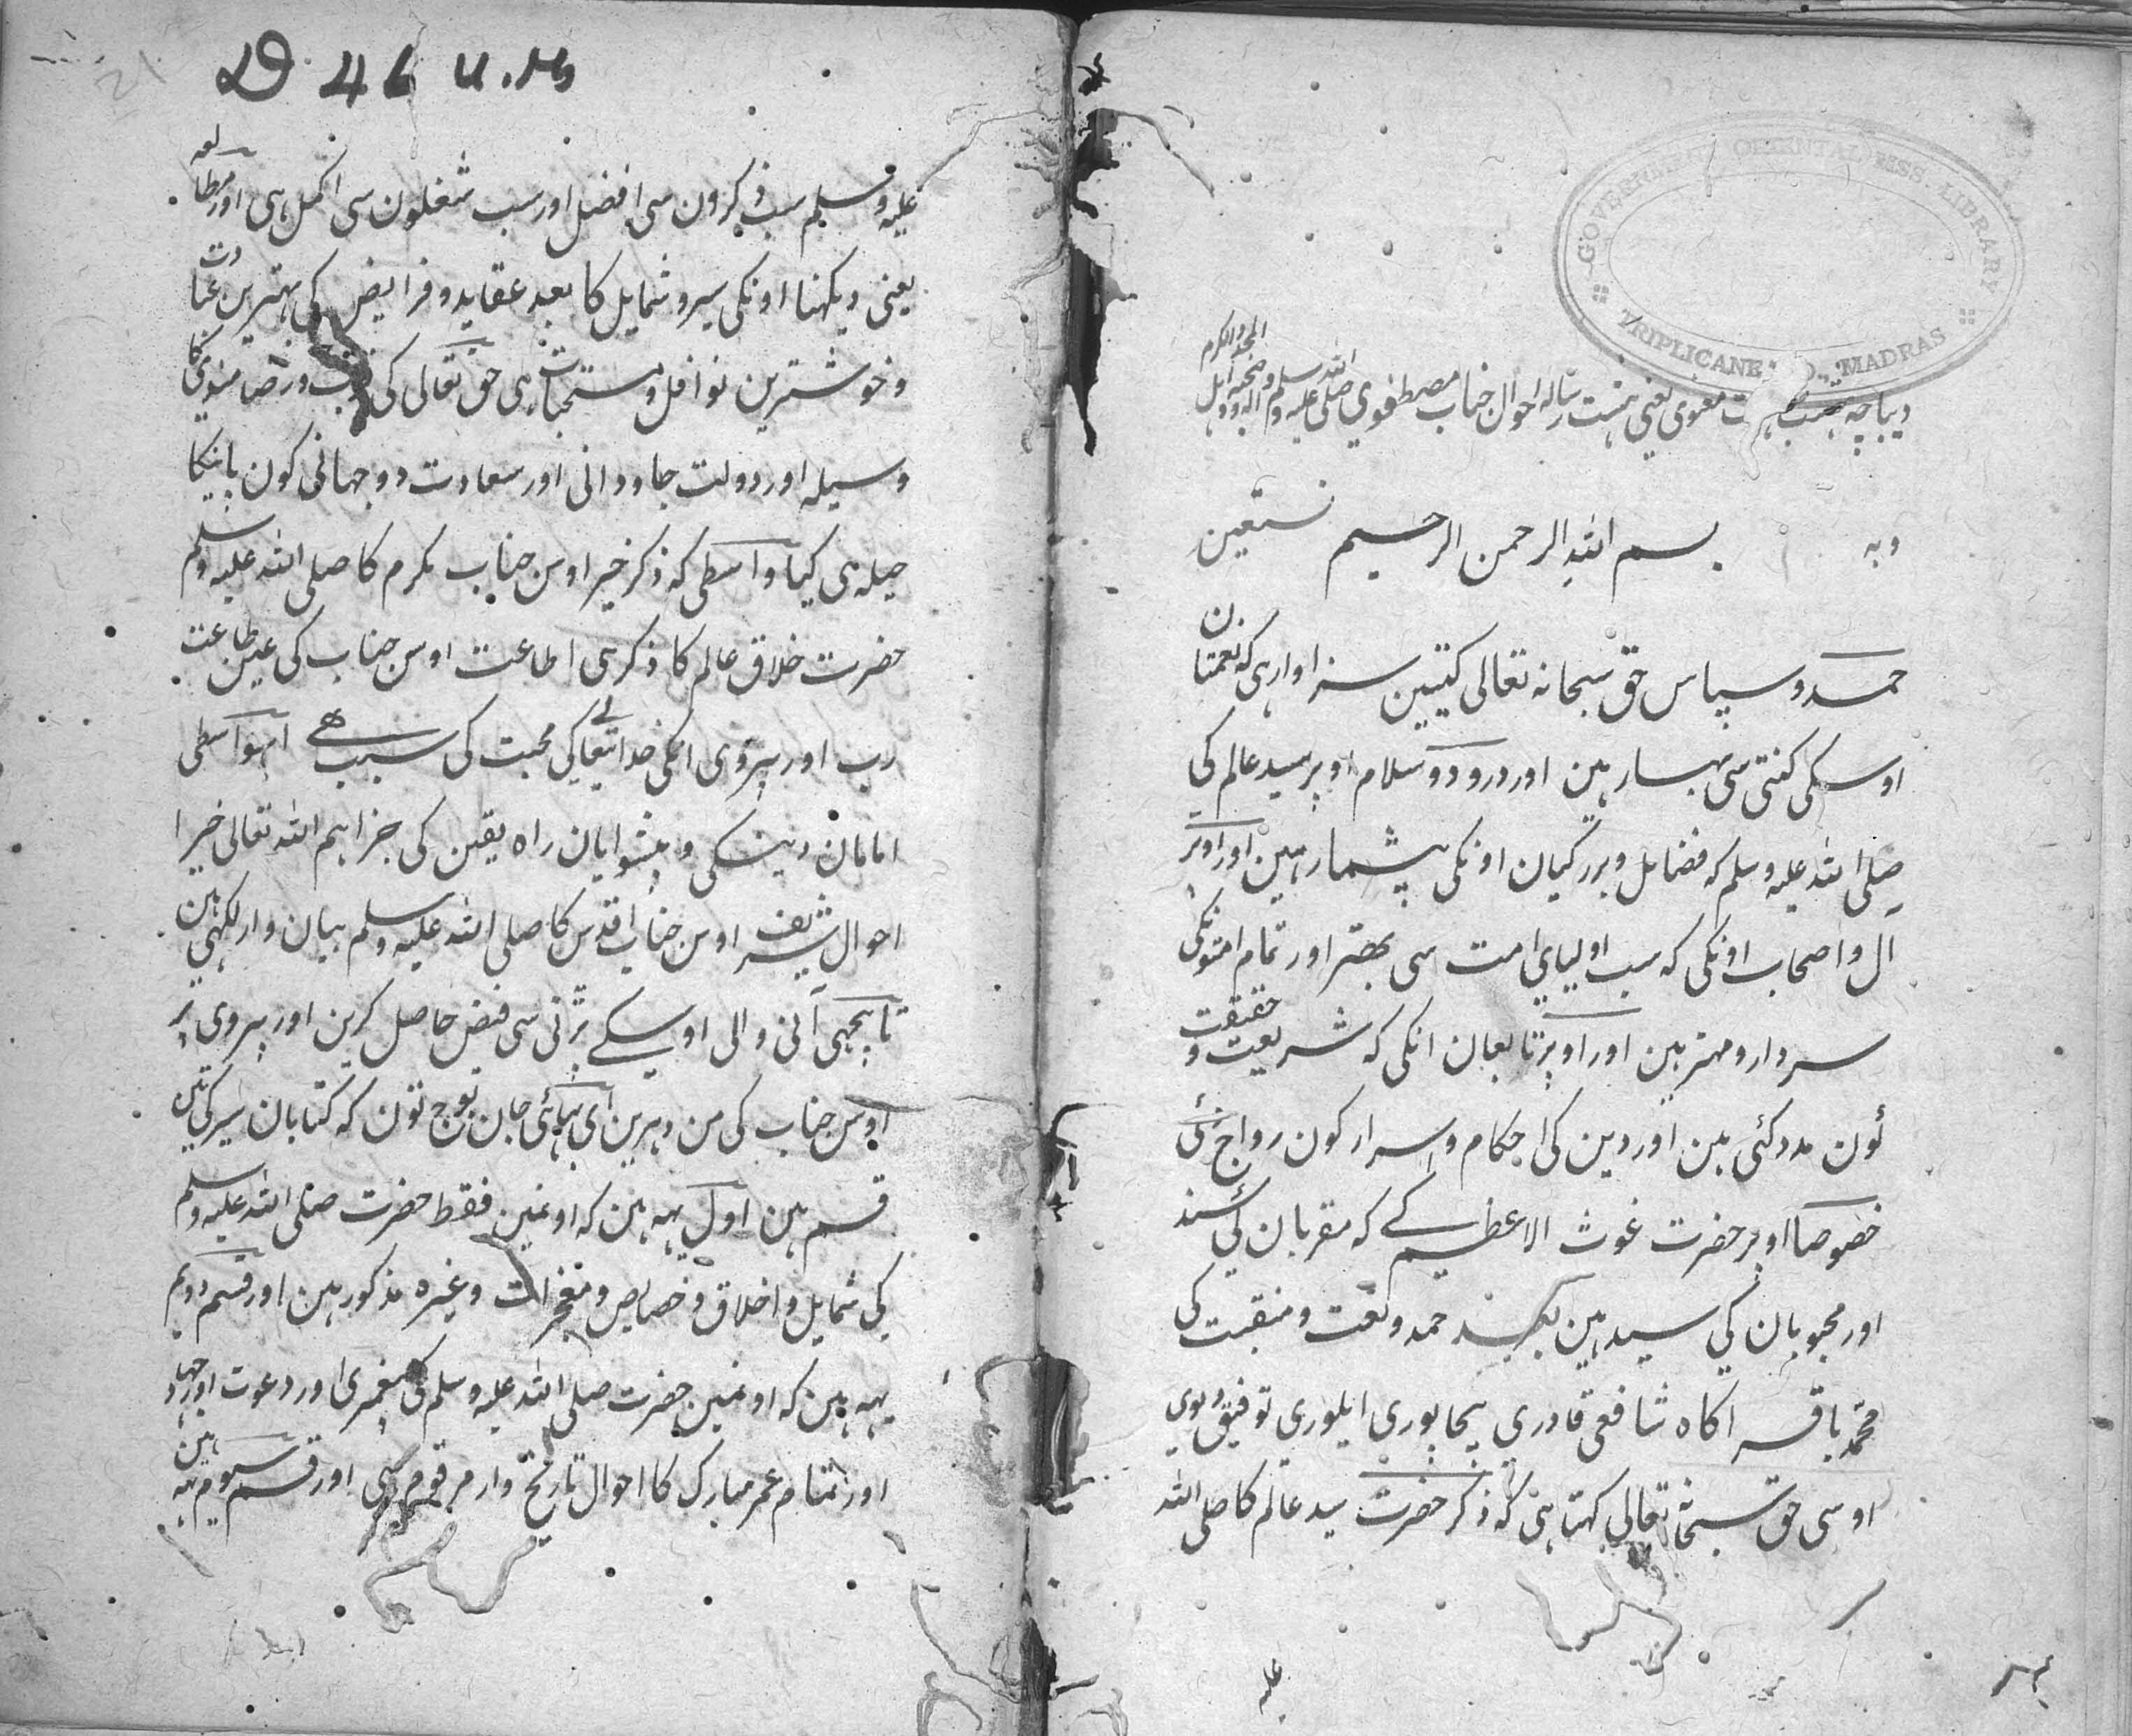 GOVERNMENT ORIENTAL MSS. LIBRARY
TRIPLICANE MADRAS
دیباچه هشت بهشت معنوی یعنی هشت رساله احوال جناب مصطفوي صلی الله علیه وسلم وآله وصحبه اهل المجد والکرم
وبه بسم الله الرحمن الرحیم نستعین
حمد و سپاس حق سبحانه تعالی کتیین سزاوار هی که نعمتان
اوسکی کنتی سی بهار هین اور درود و سلام اوپر سید عالم کی
صلی الله علیه وسلم که فضایل و بزرکیان اونکی بیشمار هین اور اوپر
آل و اصحاب اونکی که سب اولیاي امت سی بهتر اور تمام امتونکی
سردار و مهتر هین اور اوپر تابعان انکی که شریعت و حقیقت
کون مدد کئی هین اور دین کی احکام و اسرار کون رواج دئی
خصوصا اوپر حضرت غوث الاعظم کے که مقربان کی سند
اور محبوبان کي سید هین بعد حمد و نعت و منقبت کی
محمد باقر اکاه شافعی قادري بیجاپوري ایلوري توفیق دیوی
اوسی حق سبحانه تعالی کهتا هی که ذکر حضرت سید عالم کا صلی الله
علیه
D 46 U. Ms
علیه وسلم سب ذکرون سی افضل اور سب شغلون سی اکمل هی اور مطالعه
یعنی دیکهنا اونکی سیر و شمایل کا بعد عقاید و فرایض کی بهترین عبادت
و خوشترین نوافل و مستحبات هی حق تعالی کی قرب و رضامندی کا
وسیله اور دولت جاودانی اور سعادت دو جهانی کون پانیکا
حیله هی کیا واسطی که ذکر خیر اوس جناب مکرم کا صلی الله علیه وسلم
حضرت خلاق عالم کا ذکر هی اطاعت اوس جناب کی عین طاعت
رب اور پیروی انکی خدایتعالی کی محبت کی سبب هے اسواسطی
امامان دینکی و پیشوایان راه یقین کی جزاهم الله تعالی خیرا
احوال شریف اوس جناب اقدس کا صلی الله علیه وسلم بیان وار لکهی هین
تا پیچهی آنی والی اوسکے پڑنی سی فیض حاصل کرین اور پیروی پر
اوس جناب کی من دهرین ای بهائی جان بوج تون که کتابان سیر کی تین
قسم هین اول یهه هین که اونمین فقط حضرت صلی الله علیه وسلم
کی شمایل و اخلاق و خصایص و معجزات وغیره مذکور هین اور قسم دویم
یهه هین که اونمین حضرت صلی الله علیه وسلم کی پیغمبری اور دعوت اور جهاد
اور تمام عمر مبارک کا احوال تاریخ وار مرقوم هی اور قسم سیوم یهه هین